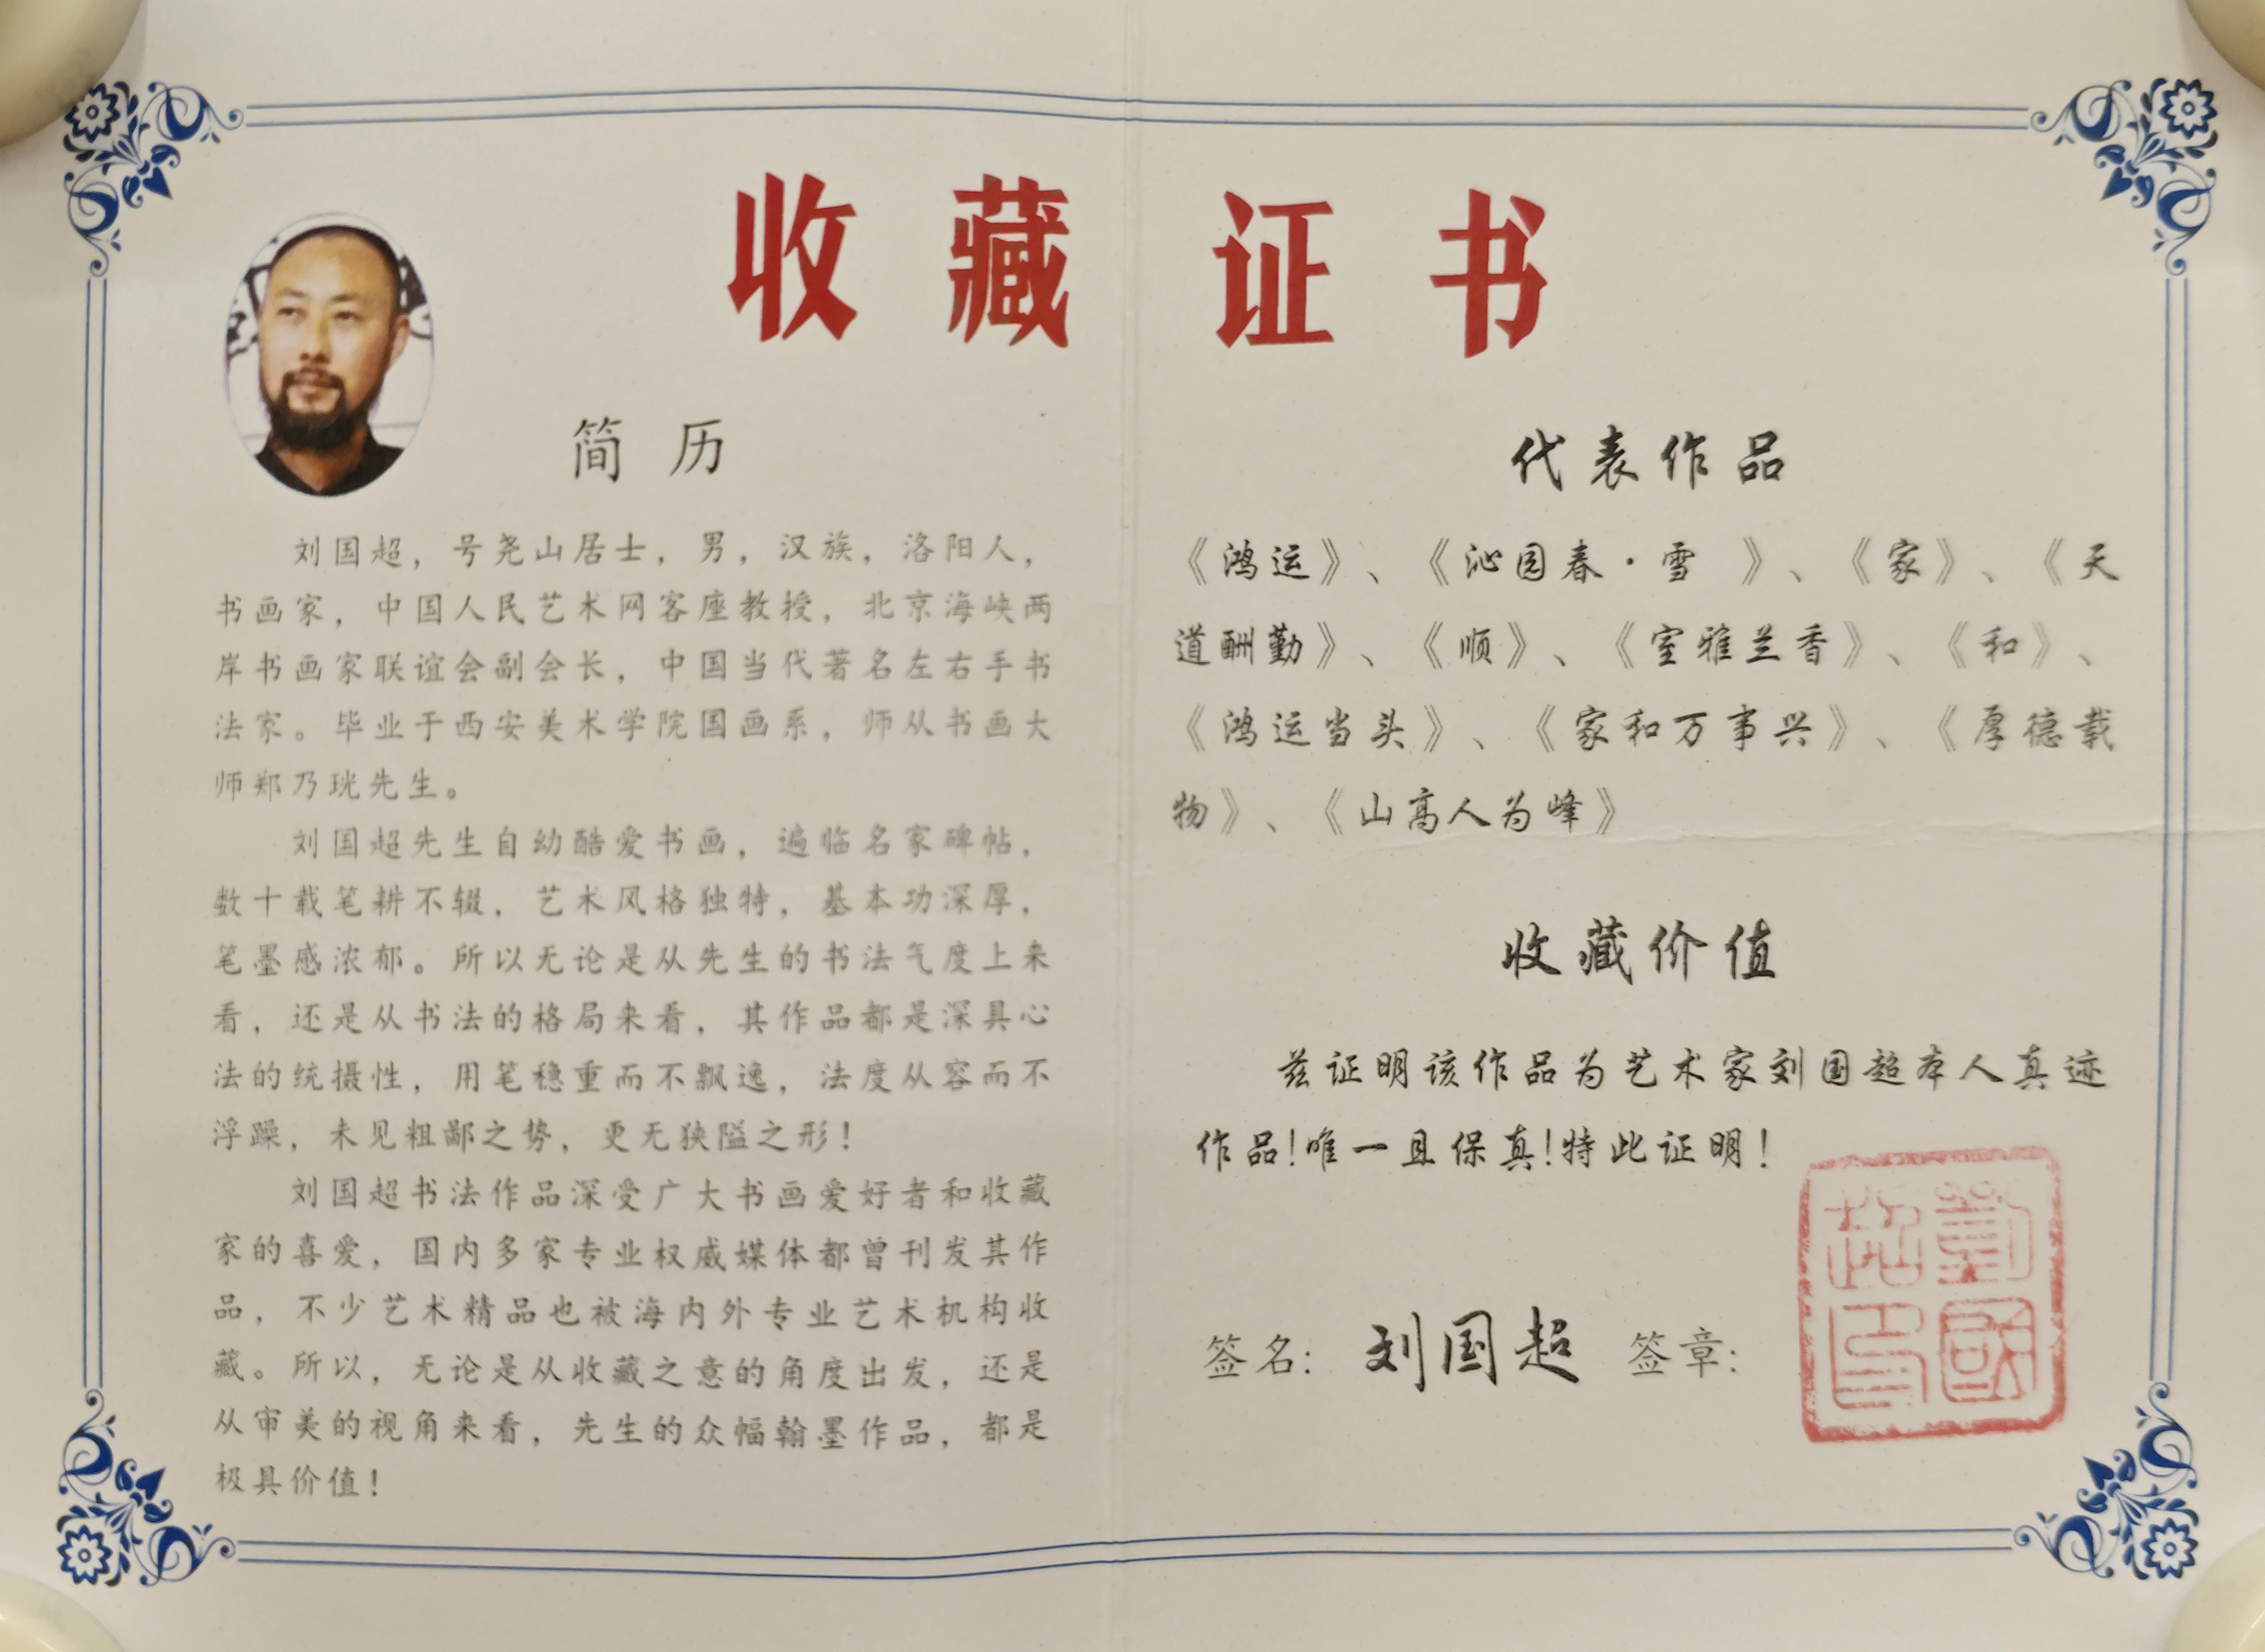 收藏证书
简历
刘国超，号尧山居士，男，汉族，洛阳人，
书画家，中国人民艺术网客座教授，北京海峡两
岸书画家联谊会副会长，中国当代著名左右手书
法家。毕业于西安美术学院国画系，师从书画大
师郑乃珖先生。
刘国超先生自幼酷爱书画，遍临名家碑帖，
数十载笔耕不辍，艺术风格独特，基本功深厚，
笔墨感浓郁。所以无论是从先生的书法气度上来
看，还是从书法的格局来看，其作品都是深具心
法的统摄性，用笔稳重而不飘逸，法度从容而不
浮躁，未见粗鄙之势，更无狭隘之形！
刘国超书法作品深受广大书画爱好者和收藏
家的喜爱，国内多家专业权威媒体都曾刊发其作
品，不少艺术精品也被海内外专业艺术机构收
藏。所以，无论是从收藏之意的角度出发，还是
从审美的视角来看，先生的众幅翰墨作品，都是
极具价值！
代表作品
《鸿运》、《沁园春·雪 》、《家》、《天
道酬勤》、《顺》、《室雅兰香》、《和》、
《鸿运当头》、《家和万事兴》、《厚德载
物》、《山高人为峰》
收藏价值
兹证明该作品为艺术家刘国超本人真迹
作品!唯一且保真!特此证明！
签名：刘国超 签章：
劉國超印